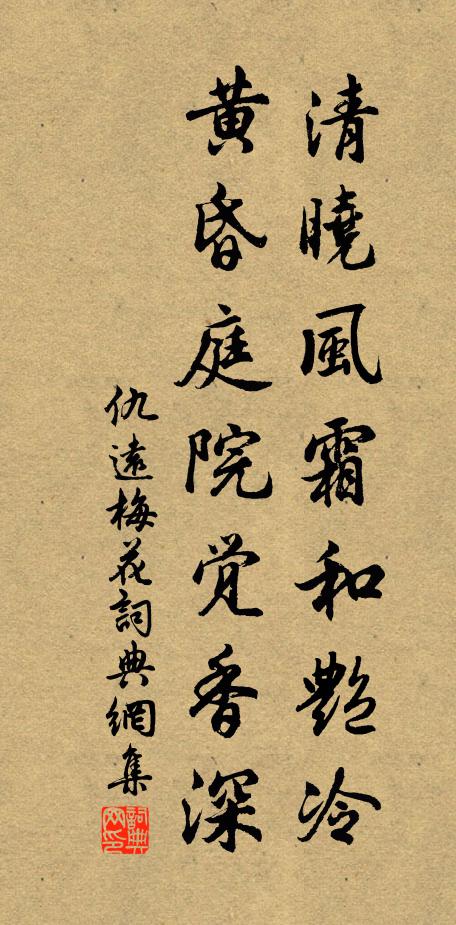 清曉風霜和艷冷
黄昏庭院覺香深
仇遠梅花詞典網集
詞典网印